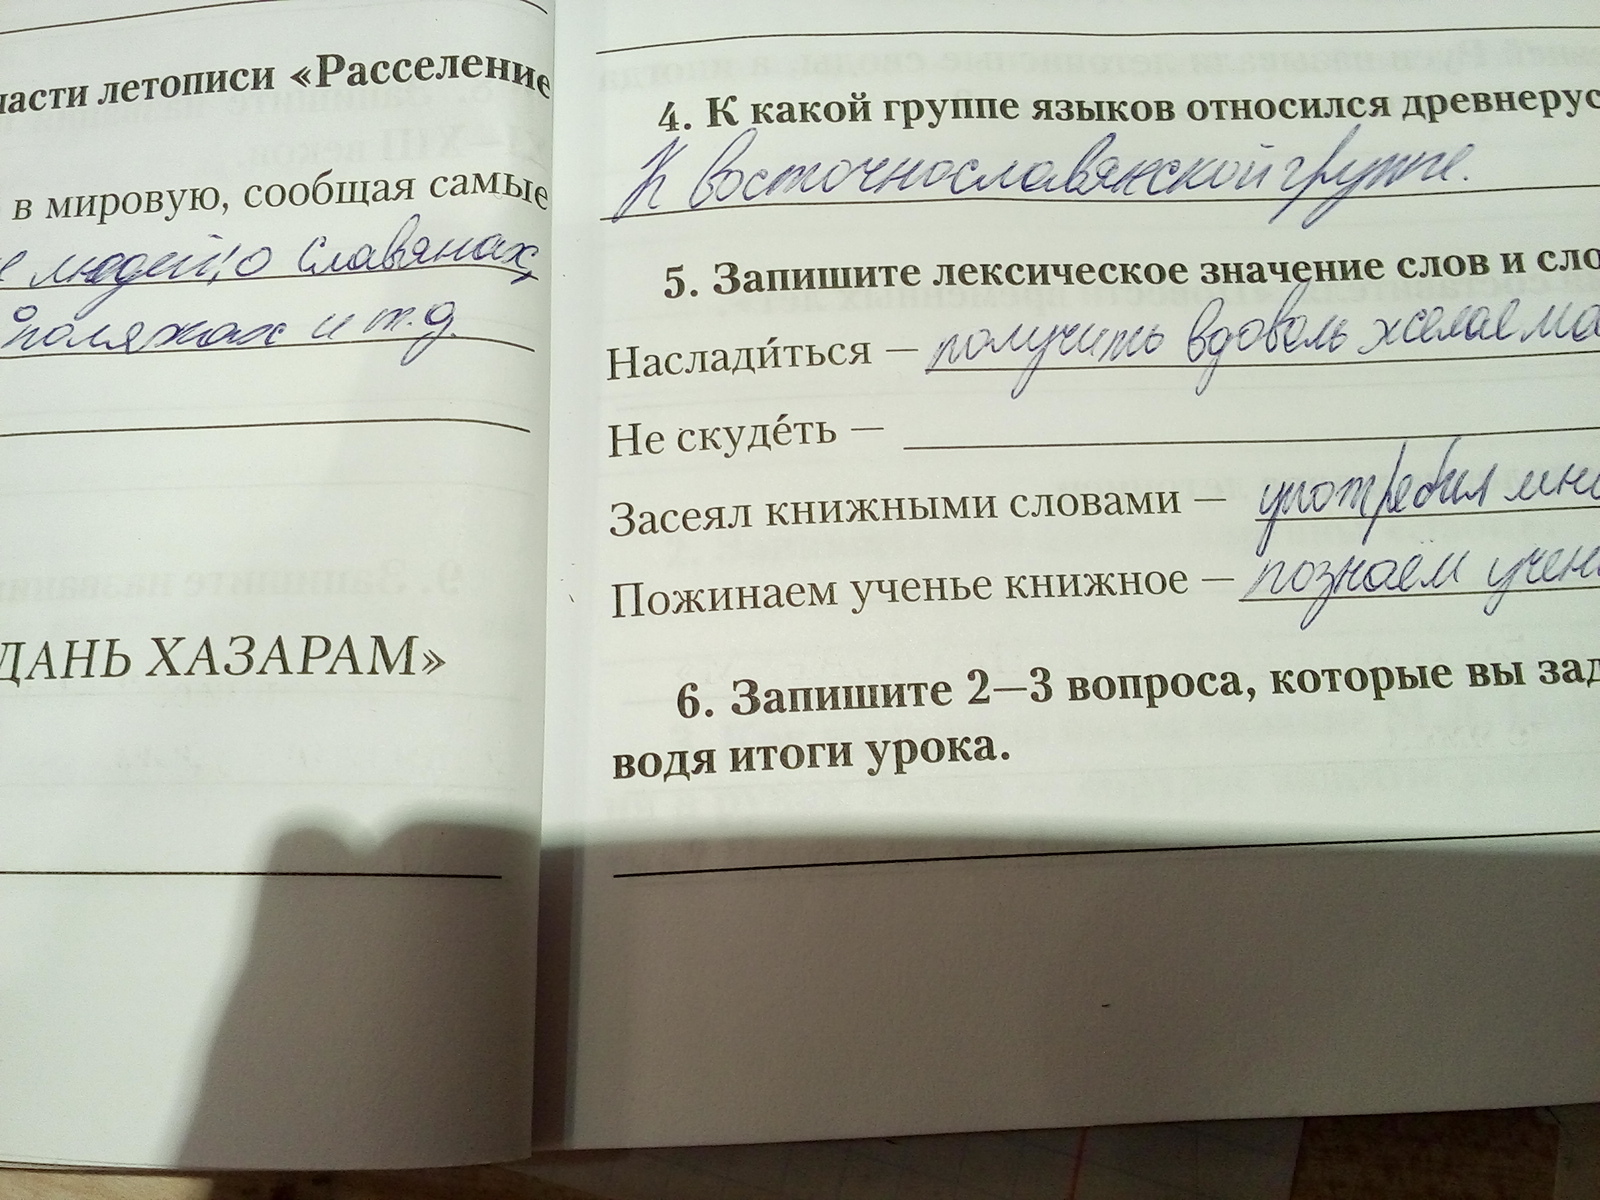 части летописи «Расселение
в мировую, сообщая самые
людей, о славянах,
полянах и т.д.
ДАНЬ ХАЗАРАМ»
4. К какой группе языков относился древнерус
К восточнославянской группе.
5. Запишите лексическое значение слов и сло
Наслади́ться — получить вдоволь желаемо
Не скуде́ть —
Засеял книжными словами — употребил мно
Пожинаем ученье книжное — познаем учен
6. Запишите 2—3 вопроса, которые вы зад
водя итоги урока.